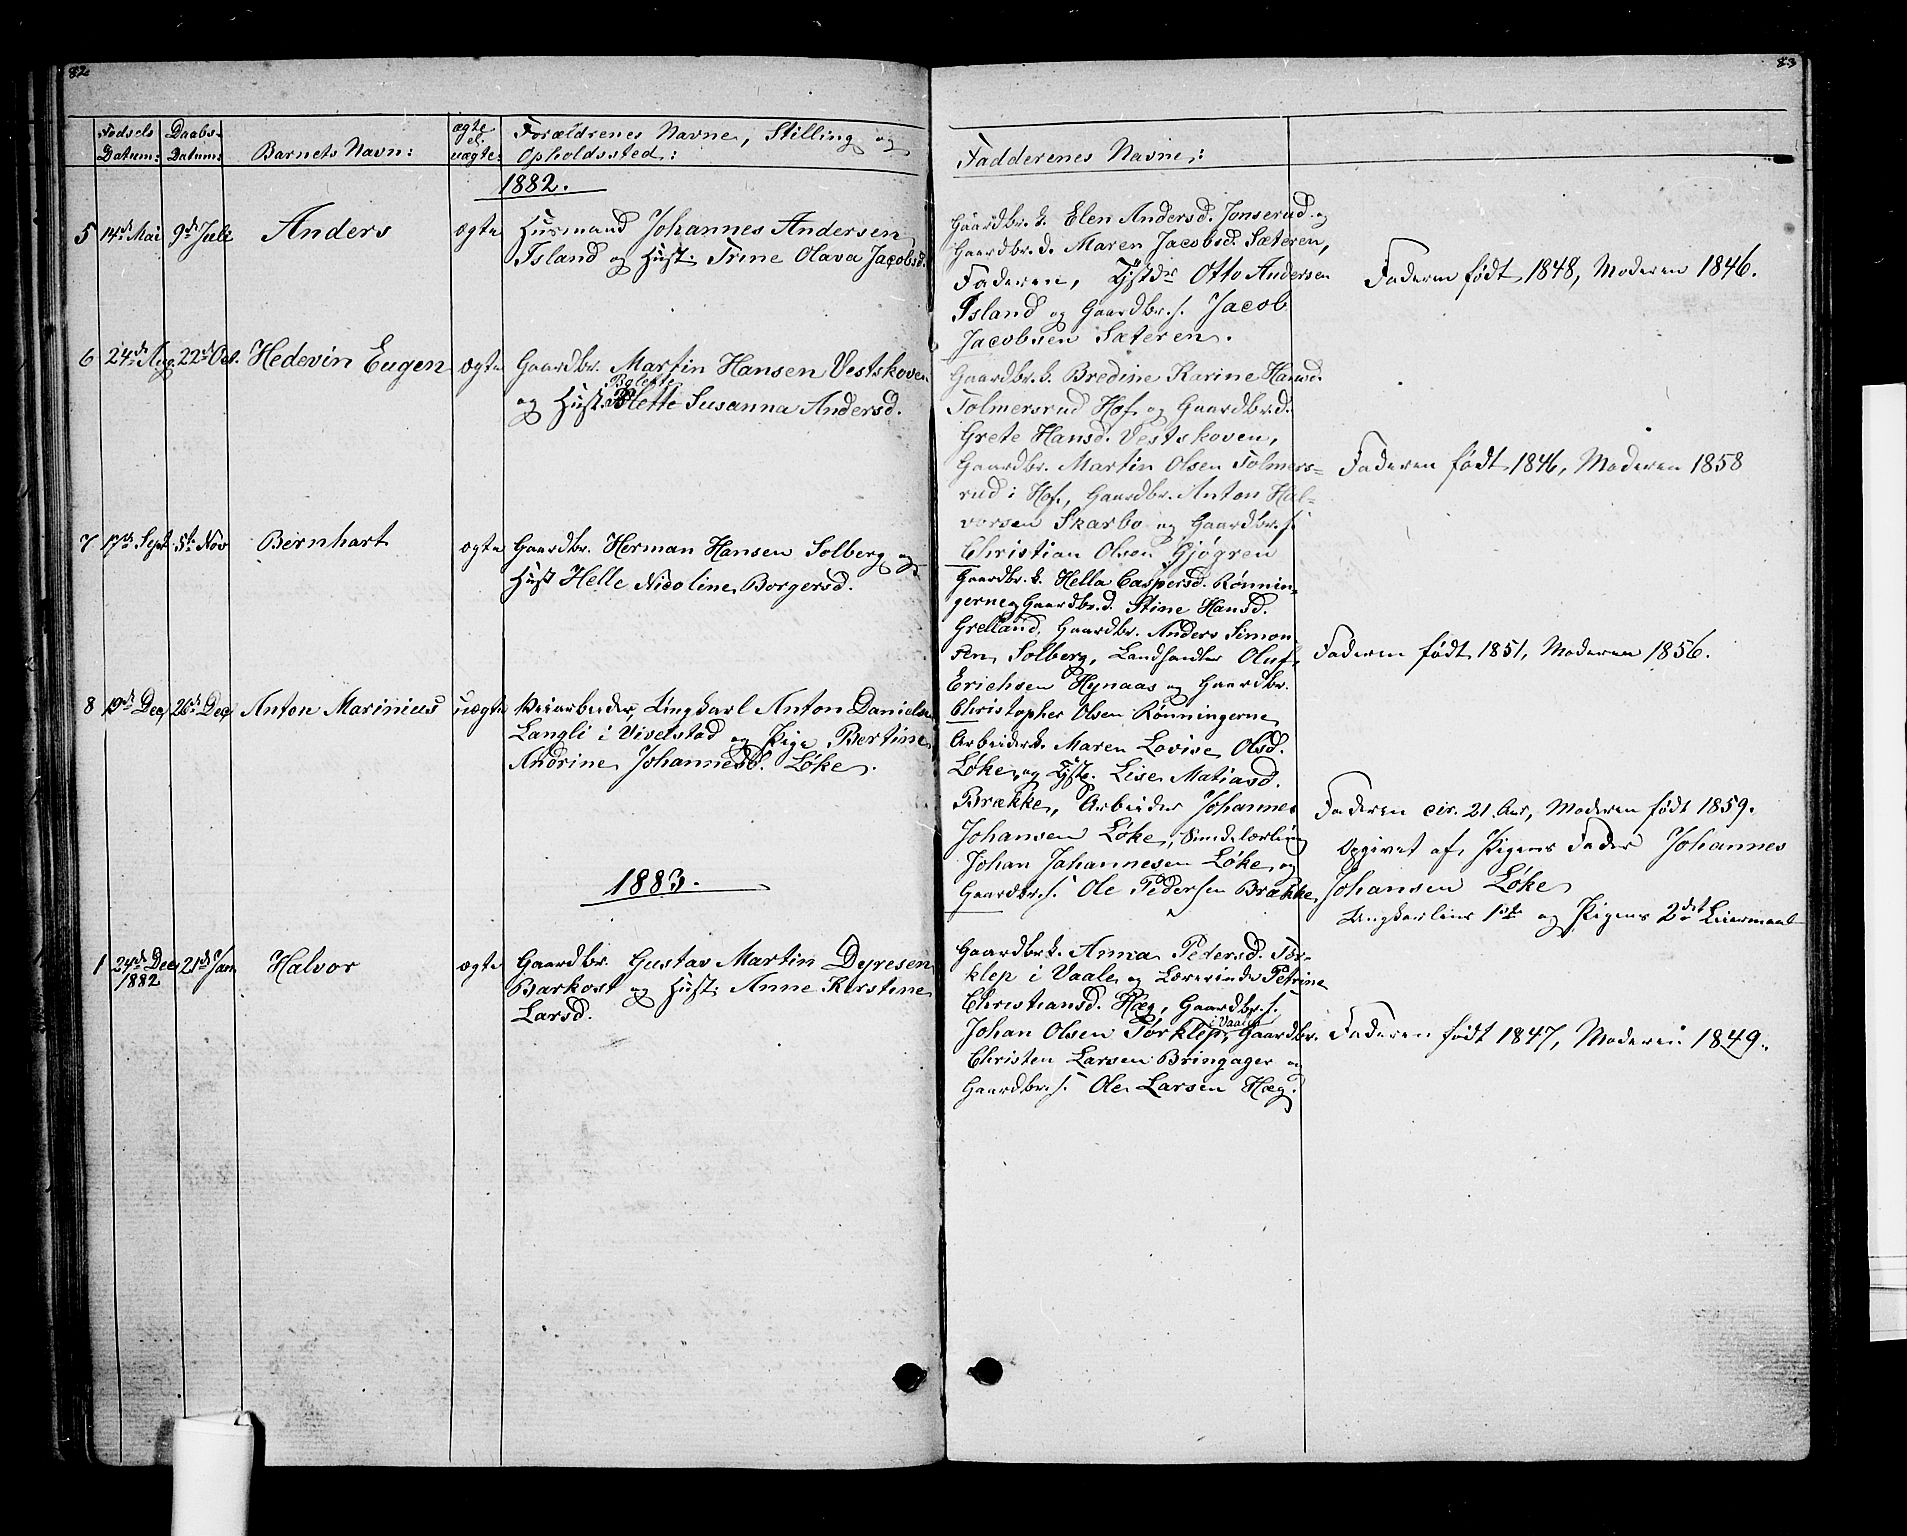 82
Fødsels Datum:
Daabs- Datum:
Barnets Navn:
ægte el. uægte:
Forældrenes Navne, Stilling og
Opholdssted:
1882.
5 14de Mai 9de Juli Anders ægte Husmand Johannes Andersen
Island og Hust. Trine Olava Jacobsd.
6 24de Aug. 22de Oct. Hedevin Eugen ægte Gaardbr. Martin Hansen Vestskoven
og Hust. Susanna Andersd.
7 17de Sept 5te Nov Bernhart ægte Gaardbr. Herman Hansen Solberg og
Hust Helle Nicoline Borgersd.
8 19de Dec. 26de Dec Anton Marinius uægte Veiarbeider, Ungkarl Anton Daniels.
Langli i Vivelstad og Pige Bertine
Andrine Johannesd. Løke.
1883.
1 24de Dec 1882 21de Jan Halvor ægte Gaardbr. Gustav Martin Dyresen
Barkost og Hust. Anne Kirstine
Larsd.
83
Fadderenes Navne:
Gaardbr. k. Elen Andersd. Jonserud og
Gaardbr. d. Maren Jacobsd. Sæteren,
Faderen, Tjstdr Otto Andersen
Island og Gaardbr. s. Jacob
Jacobsen Sæteren.
Faderen født 1848, Moderen 1846.
Gaardbr. k. Bredine Karine Hansd.
Tolmersrud Hof og Gaardbr. d.
Grete Hansd. Vestskoven,
Gaardbr. Martin Olsen Tolmers-
rud i Hof, Gaardbr. Anton Hal-
vorsen Skarbo og Gaardbr. s.
Christian Olsen Gjøgren
Faderen født 1846, Moderen 1858
Gaardbr. k. Hella Caspersd. Rønnin-
gerne og Gaardbr. d. Stine Hansd.
Grelland, Gaardbr. Anders Simon
sen Solberg, Landhandler Oluf
Erichsen Hynaas og Gaardbr.
Christopher Olsen Rønningerne
Faderen født 1851, Moderen 1856.
Arbeider k. Maren Lovise Olsd.
Løke, og Tjste. Lise Matiasd.
Brække, Arbeider Johannes
Johansen Løke, Smedelærling
Johan Johannesen Løke og
Gaardbr. s. Ole Pedersen Brække
Faderen cir. 21 Aar, Moderen født 1859.
Opgivet af Pigens Fader Johannes
Johansen Løke
Ungkarlens 1ste og Pigens 2det Leiermaal
Gaardbr k. Anna Pedersd. Tor-
klep i Vaale og Lærerinde Petrine
Christiansd. Hæg, Gaardbr. s.
Johan Olsen Torklep i Vaale, Gaardbr.
Christen Larsen Bringager og
Gaardbr. s. Ole Larsen Hæg.
Faderen født 1847, Moderen 1849.